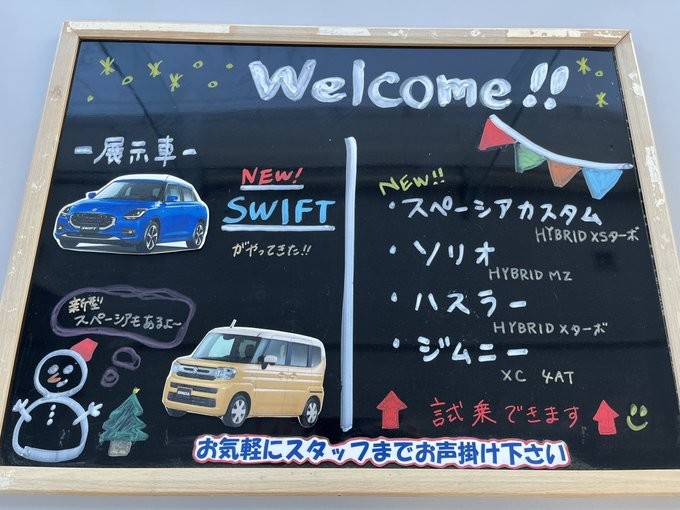 Welcome!!
-展示車-
NEW!
SWIFT
がやってきた!!
SWIFT
新型
スペーシアもあるよ~
お気軽にスタッフまでお声掛け下さい
NEW!!
・スペーシアカスタム
HYBRID XSターボ
・ソリオ
HYBRID MZ
・ハスラー
HYBRID Xターボ
・ジムニー
XC 4AT
試乗できます